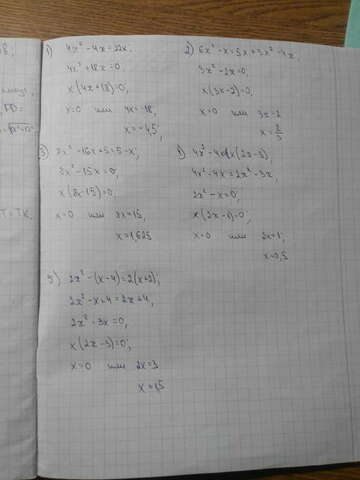 1) 4x² - 4x = 22x.
4x² + 18x = 0,
x(4x+18)=0,
x=0 или 4x=-18,
x=-4,5,
2) 6x² - x = 3x + 3x² - 4x
3x² - 2x = 0,
x(3x-2)=0,
x=0 или 3x=2
x=2/3
3) 8x² - 16x + 5 = 5 - x,
8x² - 15x = 0,
x(8x-15)=0
x=0 или 8x=15,
x=1,625
4x² - 4x = 2x² - 3x,
2x² - x = 0,
x(2x-1)=0,
x=0 или 2x=1,
x=0,5
5) 2x² - (x-4) = 2(x+2);
2x² - x + 4 = 2x + 4,
2x² - 3x = 0,
x(2x-3)=0;
x=0 или 2x=3
x=1,5